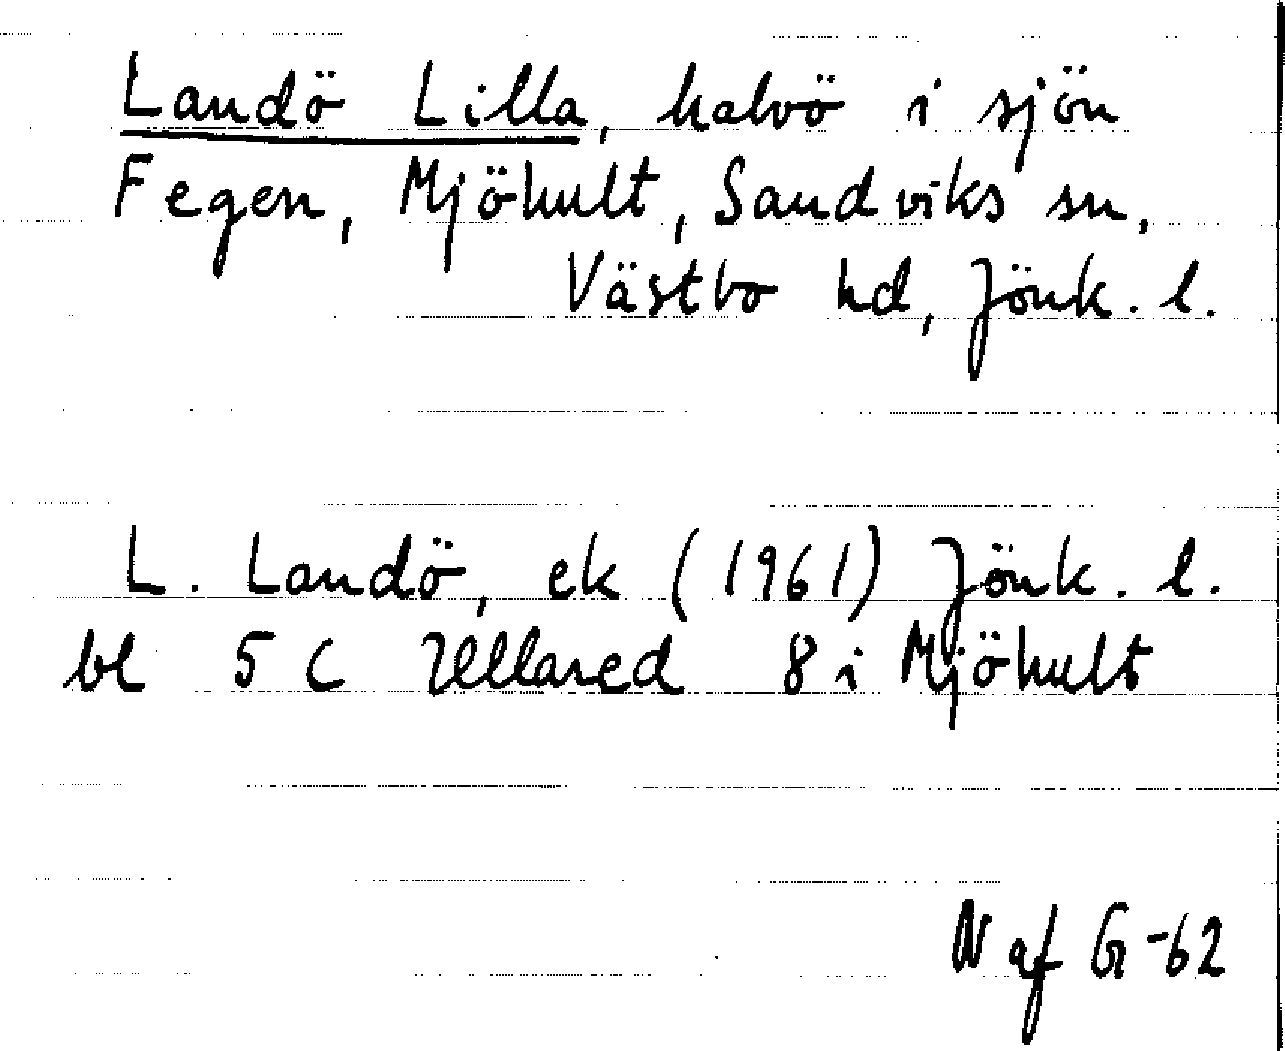 Landö Lilla, halvö i sjön
Fegen, Mjöhult, Sandviks sn,
Västbo hd, Jönk. l.
L. Landö, ek (1961) Jönk. l.
bl 5 C Ullared 8 i Mjöhult
N af G -62